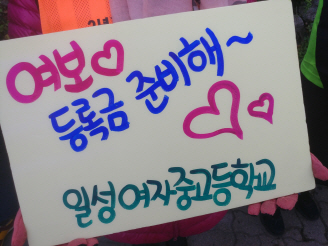 여보♡
등록금 준비해~
일성여자중고등학교